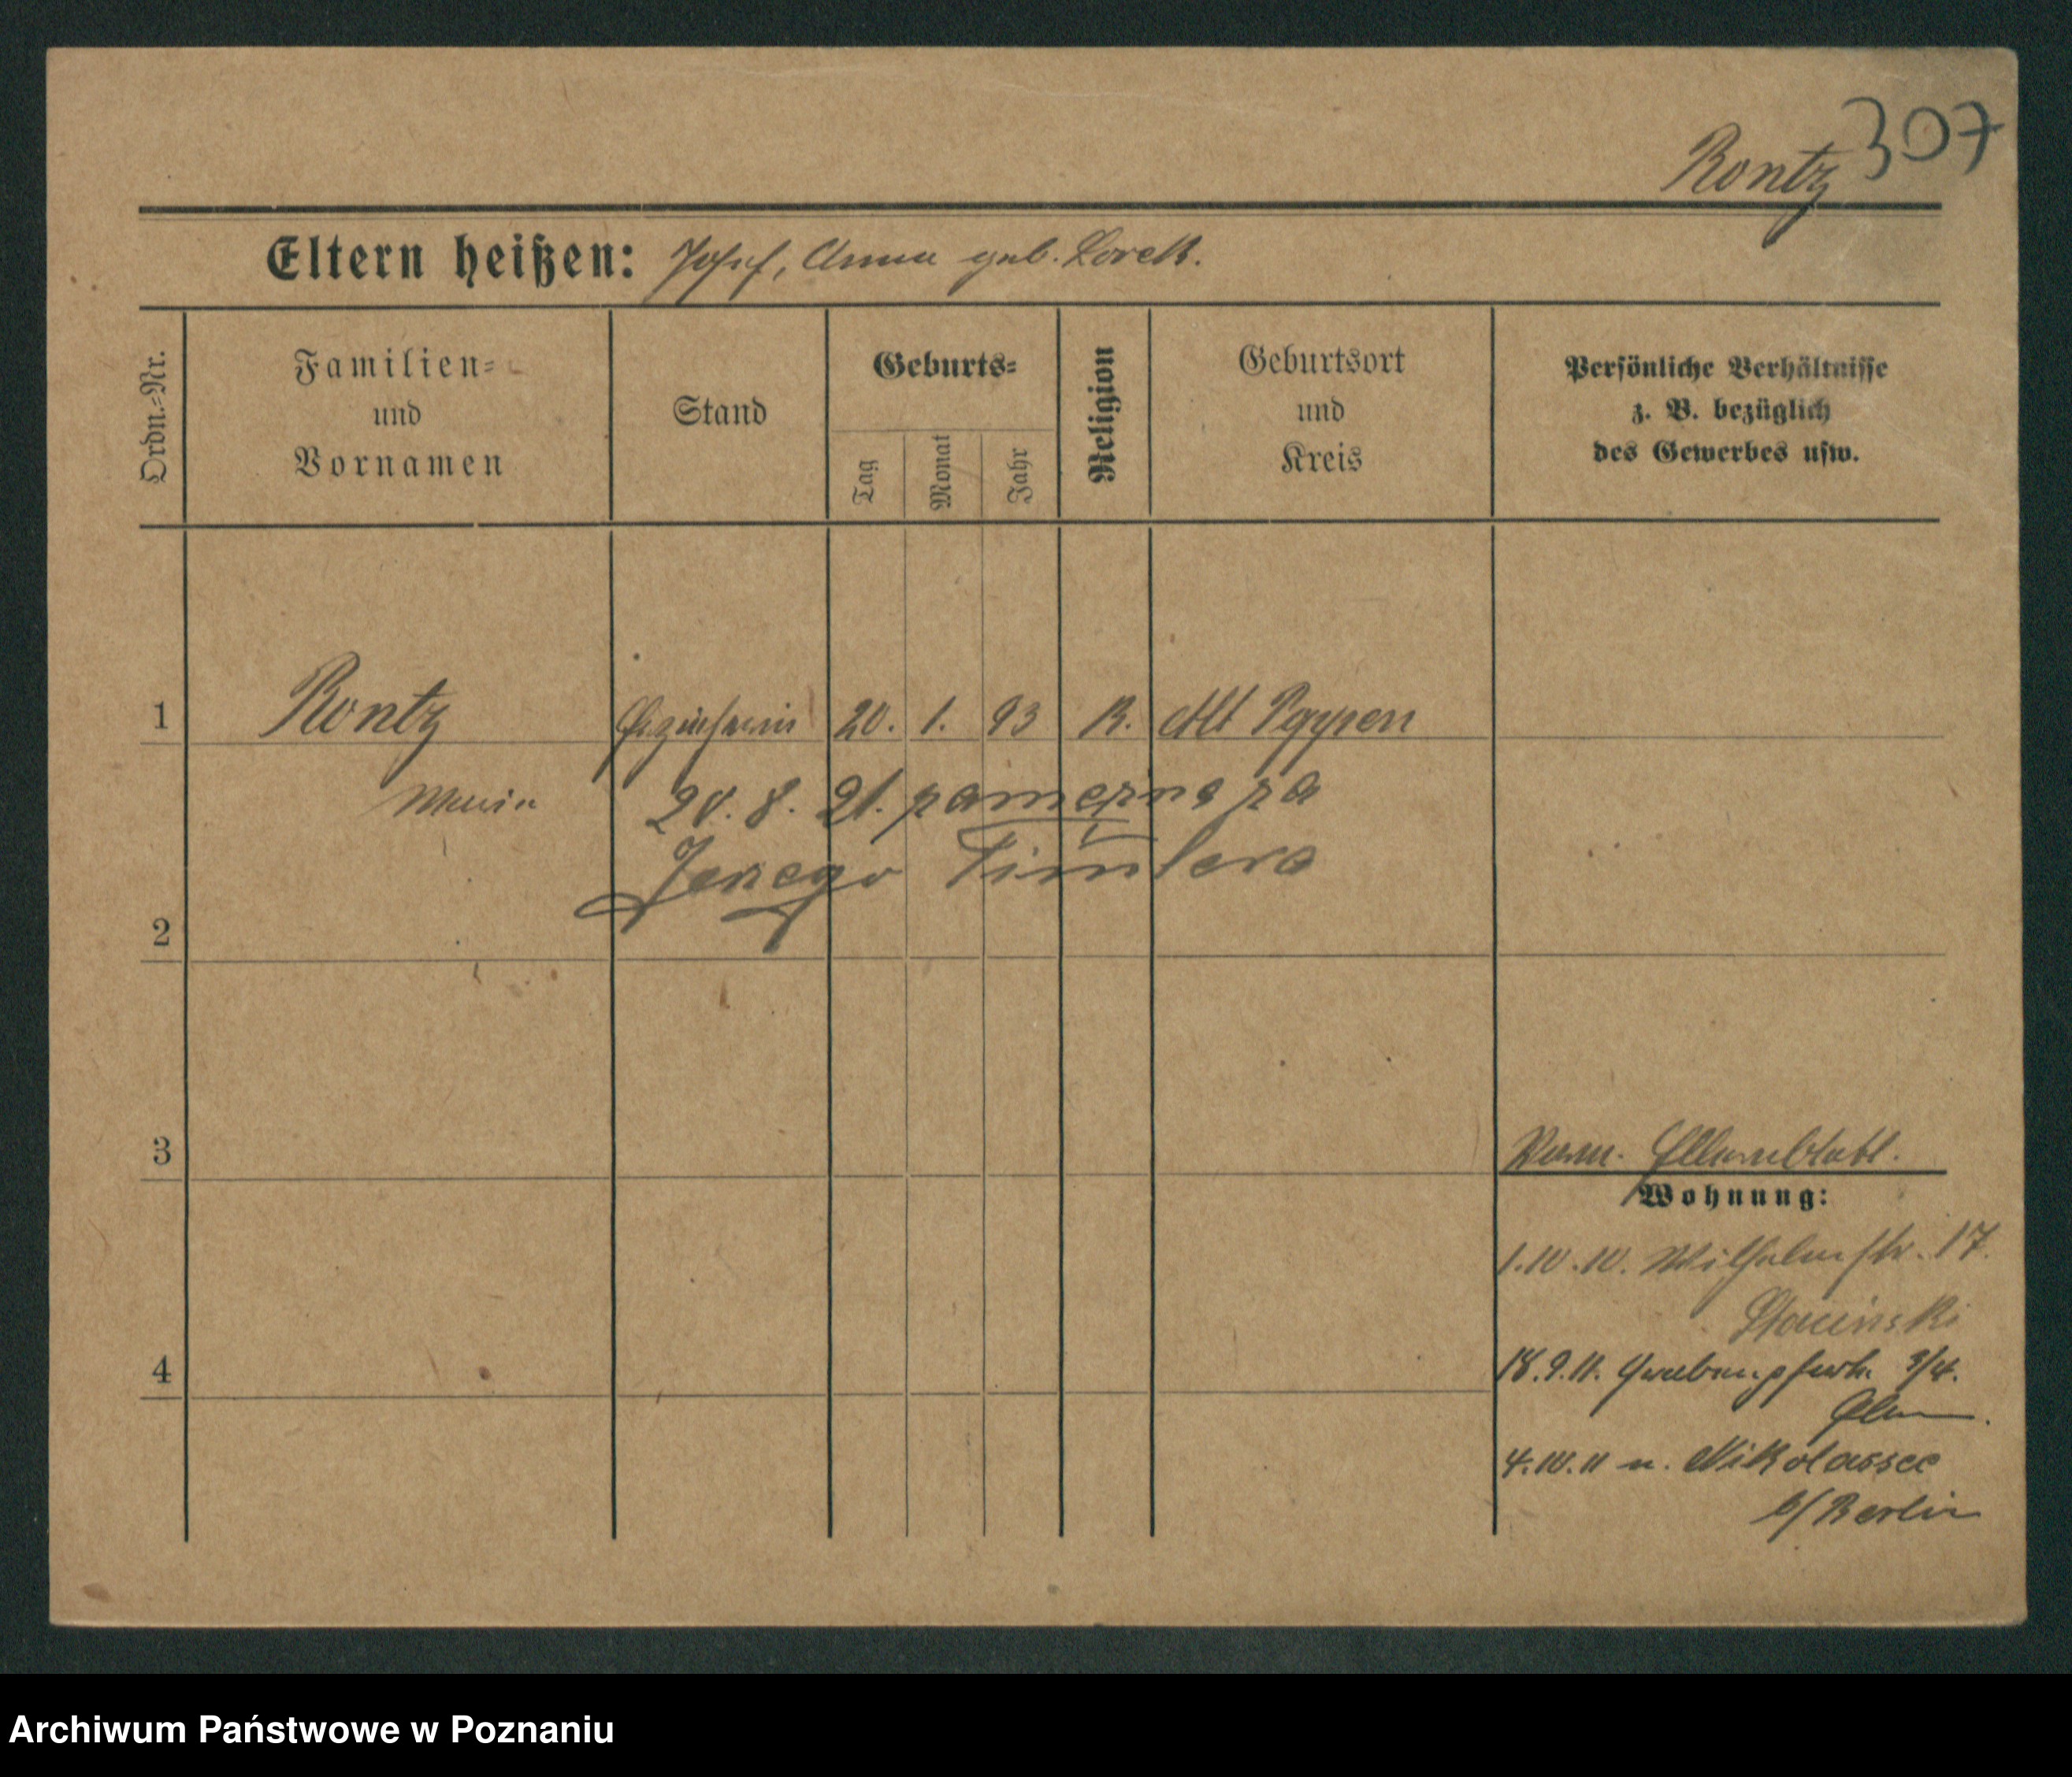 307
Rontz
Eltern heißen: Josef, Anna geb. Lorek.
Ordn.=Nr.
Familien=
und
Vornamen
Stand
Geburts=
Tag
Monat
Jahr
Religion
Geburtsort
und
Kreis
Persönliche Verhältnisse
z. B. bezüglich
des Gewerbes usw.
1 Rontz Erzieherin 20. 1. 93 K. Alt
Maria 20. 8. 21. zamężna za
Jerzego
2
3
Wohnung:
1.10.10. Wilhelmstr. 17.
4
18.9.11. 3/4.
4.10.11 n. Nikolassee
b/Berlin
Archiwum Państwowe w Poznaniu